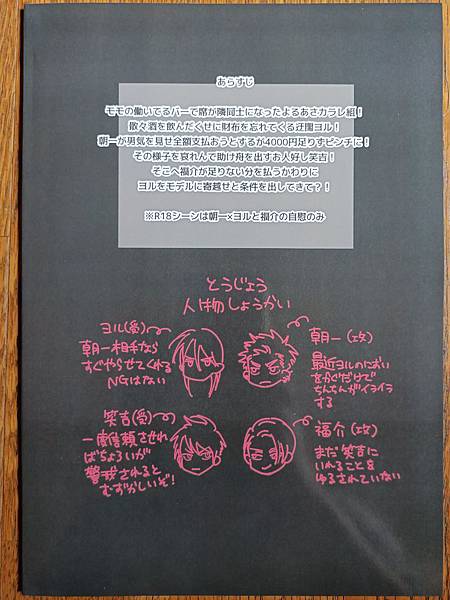 あらすじ
モモの働いてるバーで席が隣同士になったよるあさカラレ組!
散々酒を飲んだくせに財布を忘れてくる迂闊ヨル!
朝一が男気を見せ全額支払おうとするが4000円足りずピンチに!
その様子を哀れんで助け舟を出すお人好し笑吉!
そこへ福介が足りない分を払うかわりに
ヨルをモデルに寄越せと条件を出してきて?!
※R18シーンは朝一×ヨルと福介の自慰のみ
とうじょう
人物しょうかい
ヨル(受)
朝一相手なら
すぐやらせてくれる
NGはない
朝一(攻)
最近ヨルのにおい
をかぐだけで
ちんちんがイライラ
する
笑吉(受)
一度信頼させれ
ばちょろいが
警戒されると
むずかしいぞ!
福介(攻)
まだ笑吉に
いれることを
ゆるされていない